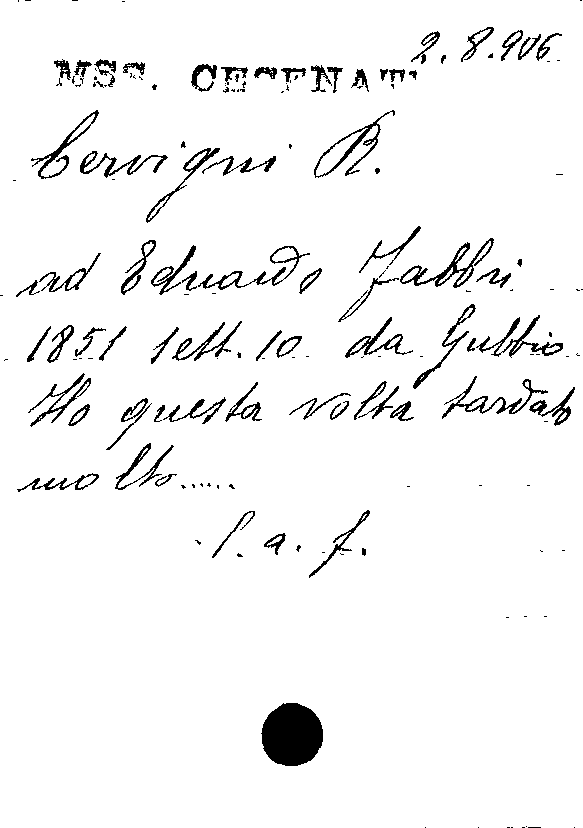 2.8.906
MSS. CESENATI
Cervigni R.
ad Eduardo Fabbri
1851 sett. 10 da Gubbio
Ho questa volta tardato
molto......
l. a. f.